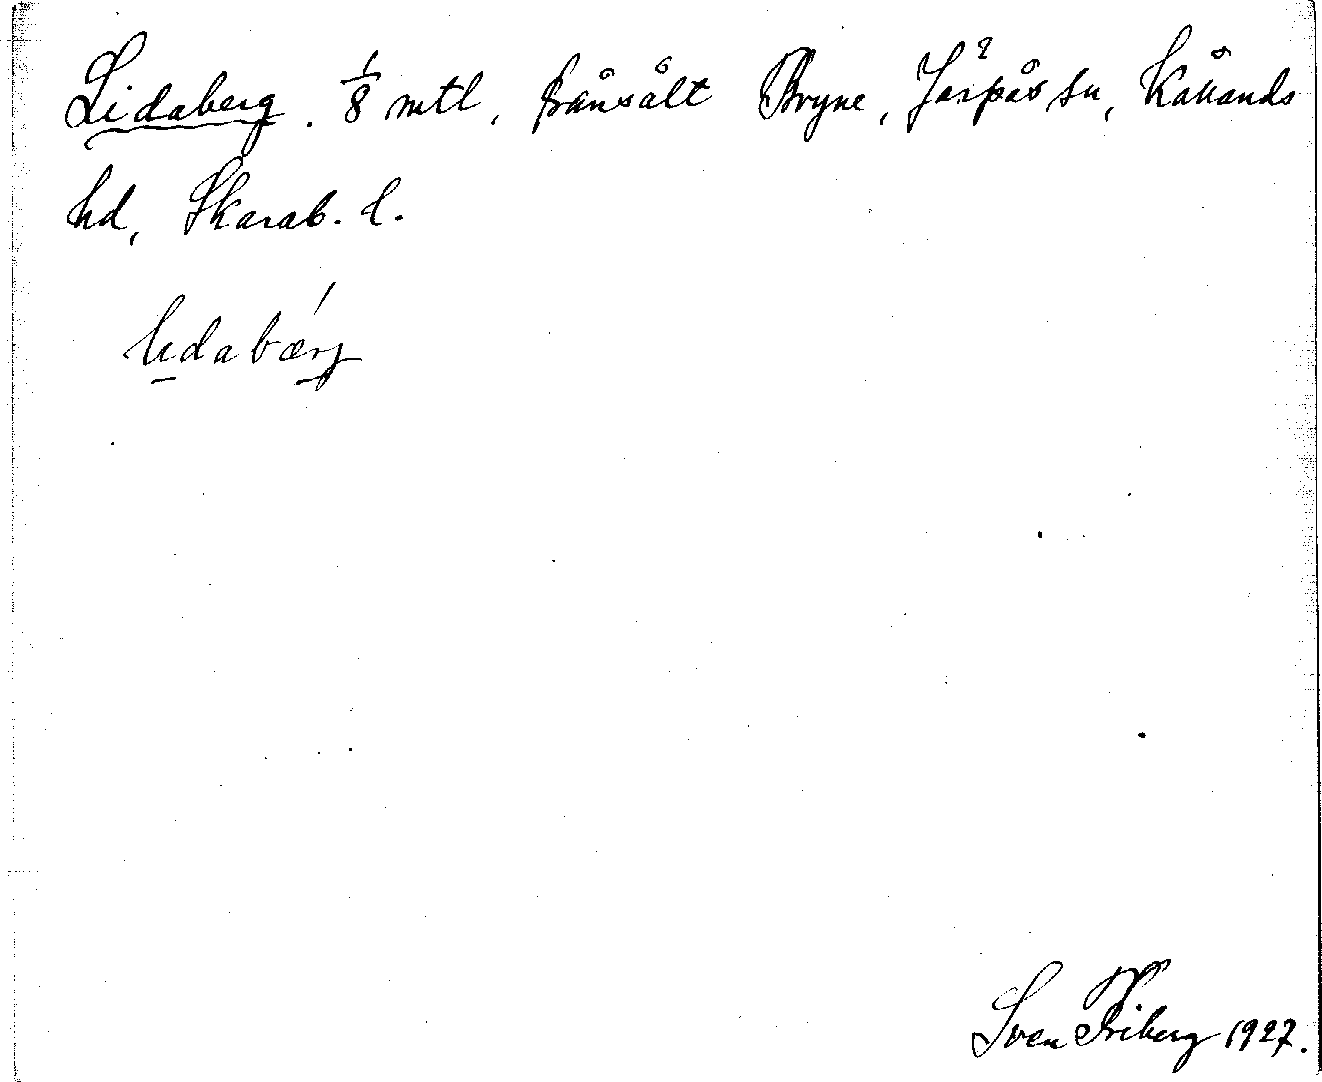 Lidaberg. 1/8 mtl, frånsålt Bryne, Järpås sn, Kållands
hd, Skarab. l.
Sven Friberg 1927.